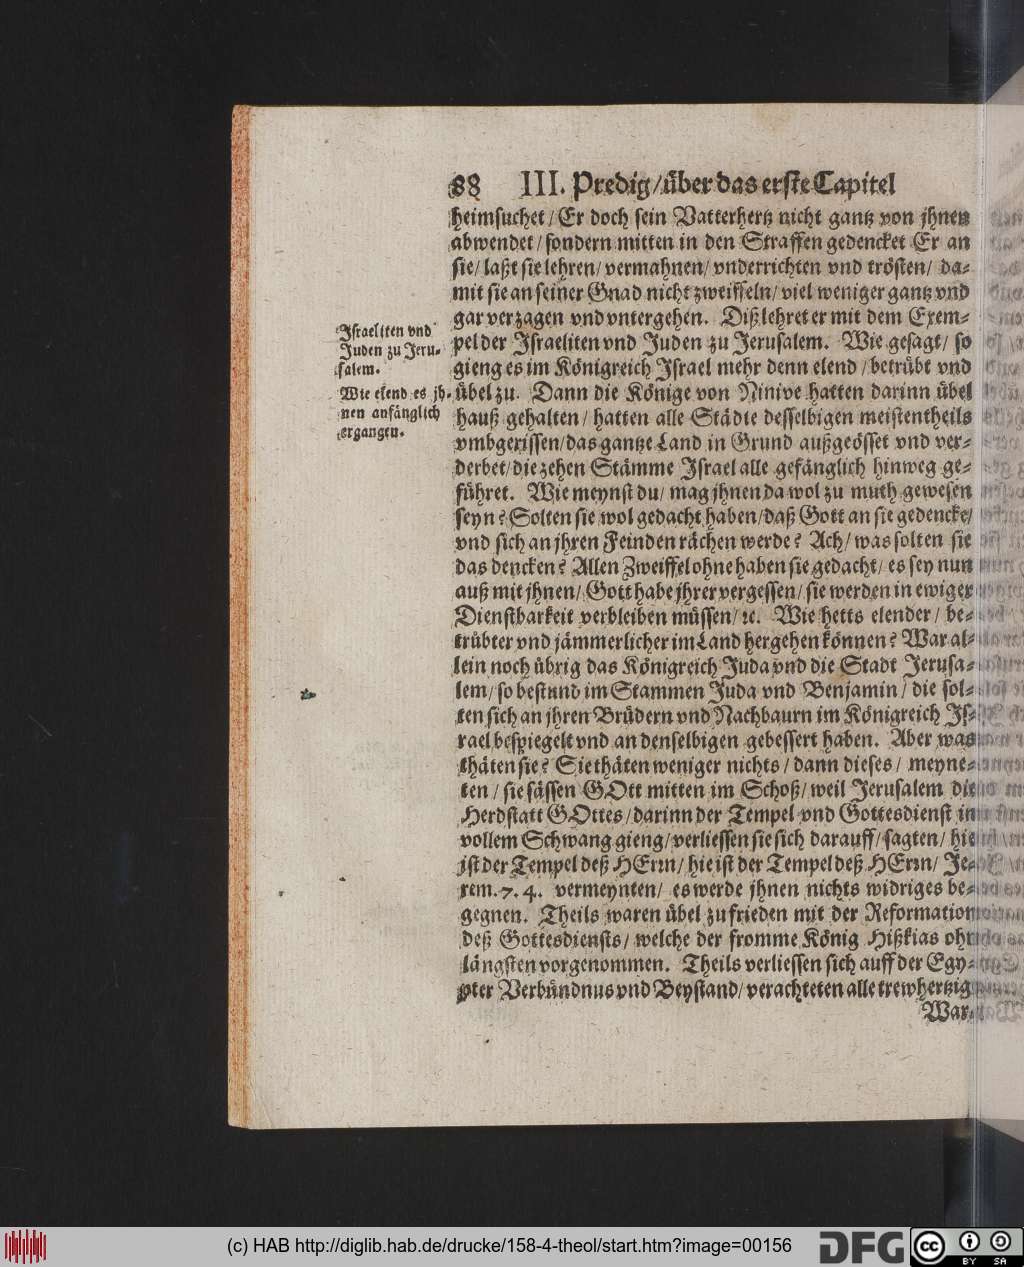 88 III. Predig/über das erste Capitel
heimsuchet/Er doch sein Vatterhertz nicht gantz von jhnen
abwendet/sondern mitten in den Straffen gedencket Er an
sie/laßt sie lehren/vermahnen/vnderrichten vnd trösten/da-
mit sie an seiner Gnad nicht zweiffeln/viel weniger gantz vnd
gar verzagen vnd vntergehen. Diß lehret er mit dem Exem-
Israeliten vnd
Juden zu Jeru-
salem.
pel der Israeliten vnd Juden zu Jerusalem. Wie gesagt/so
gieng es im Königreich Israel mehr denn elend/betrübt vnd
Wie elend es jh-
nen anfänglich
ergangen.
übel zu. Dann die Könige von Ninive hatten darinn übel
hauß gehalten/hatten alle Städte desselbigen meistentheils
vmbgerissen/das gantze Land in Grund außgeösset vnd ver-
derbet/die zehen Stämme Israel alle gefänglich hinweg ge-
führet. Wie meynst du/mag jhnen da wol zu muth gewesen
seyn? Solten sie wol gedacht haben/daß Gott an sie gedencke/
vnd sich an jhren Feinden rächen werde? Ach/was solten sie
das dencken? Allen Zweiffel ohne haben sie gedacht/es sey nun
auß mit jhnen/Gott habe jhrer vergessen/sie werden in ewiger
Dienstbarkeit verbleiben müssen/ꝛc. Wie hetts elender/be-
trübter vnd jämmerlicher im Land hergehen können? War al-
lein noch übrig das Königreich Juda vnd die Stadt Jerusa-
lem/so bestund im Stammen Juda vnd Benjamin/die sol-
ten sich an jhren Brüdern vnd Nachbaurn im Königreich Is-
rael bespiegelt vnd an denselbigen gebessert haben. Aber was
thäten sie? Sie thäten weniger nichts/dann dieses/meyne-
ten/sie sässen GOtt mitten im Schoß/weil Jerusalem die
Herdstatt GOttes/darinn der Tempel vnd Gottesdienst in
vollem Schwang gieng/verliessen sie sich darauff/sagten/hie
ist der Tempel deß HErꝛn/hie ist der Tempel deß HErꝛn/Je-
rem. 7. 4. vermeynten/es werde jhnen nichts widriges be-
gegnen. Theils waren übel zufrieden mit der Reformation
deß Gottesdiensts/welche der fromme König Hißkias ohn
längsten vorgenommen. Theils verliessen sich auff der Egy-
pter Verbündnus vnd Beystand/verachteten alle trewhertzig
War-
(c) HAB http://diglib.hab.de/drucke/158-4-theol/start.htm?image=00156
DFG
cc BY SA